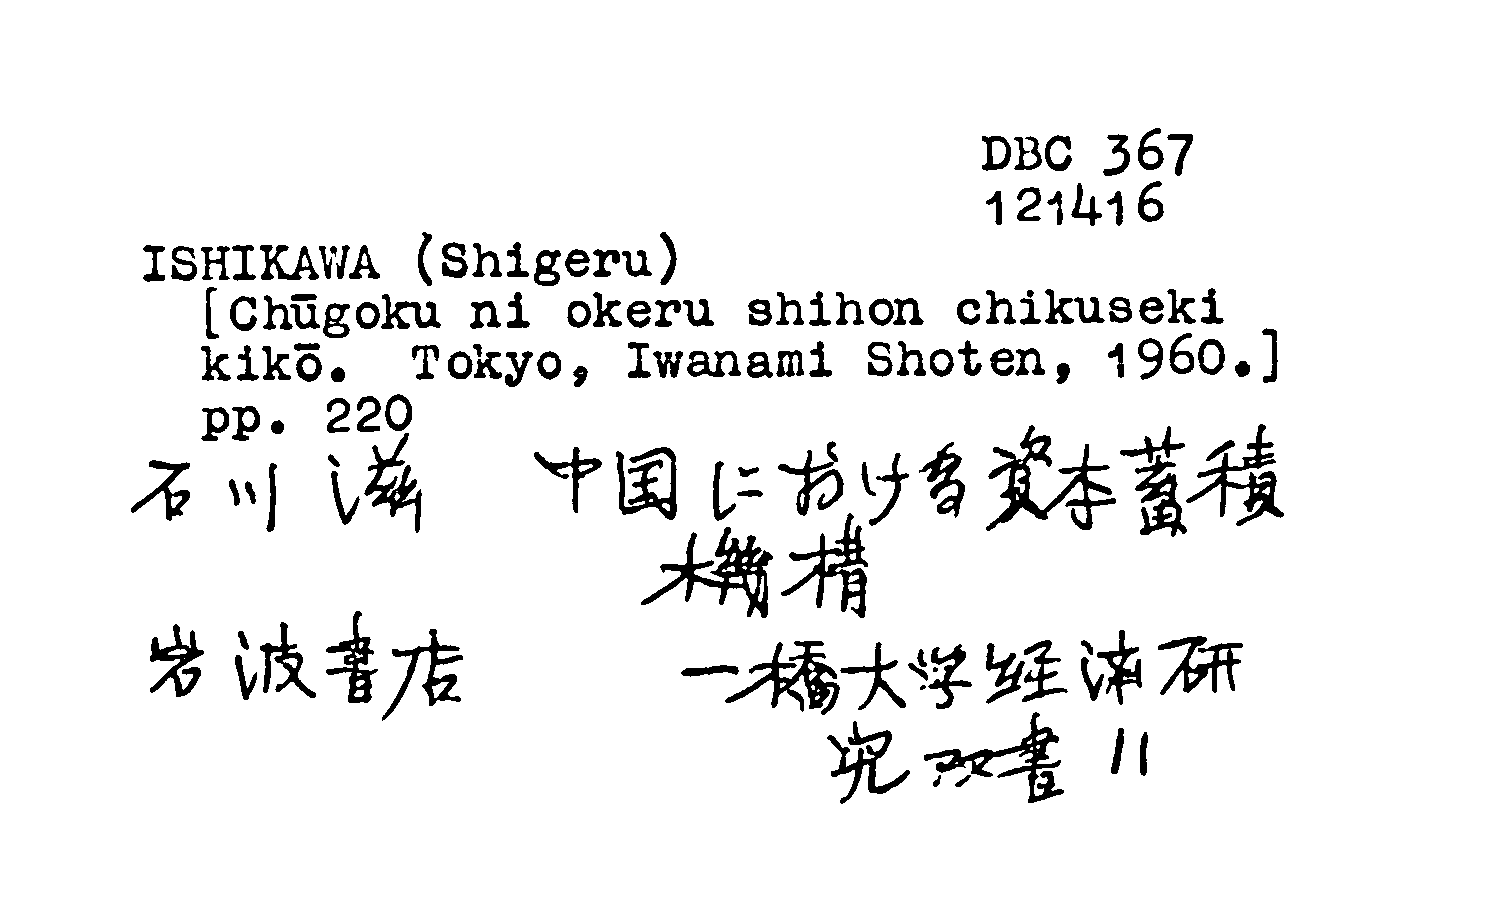 DBC 367
121416
ISHIKAWA (Shigeru)
[Chūgoku ni okeru shihon chikuseki
kikō. Tokyo, Iwanami Shoten, 1960.]
pp. 220
石川 滋 中国における資本蓄積
機構
岩波書店 一橋大学経済研
究双書 11